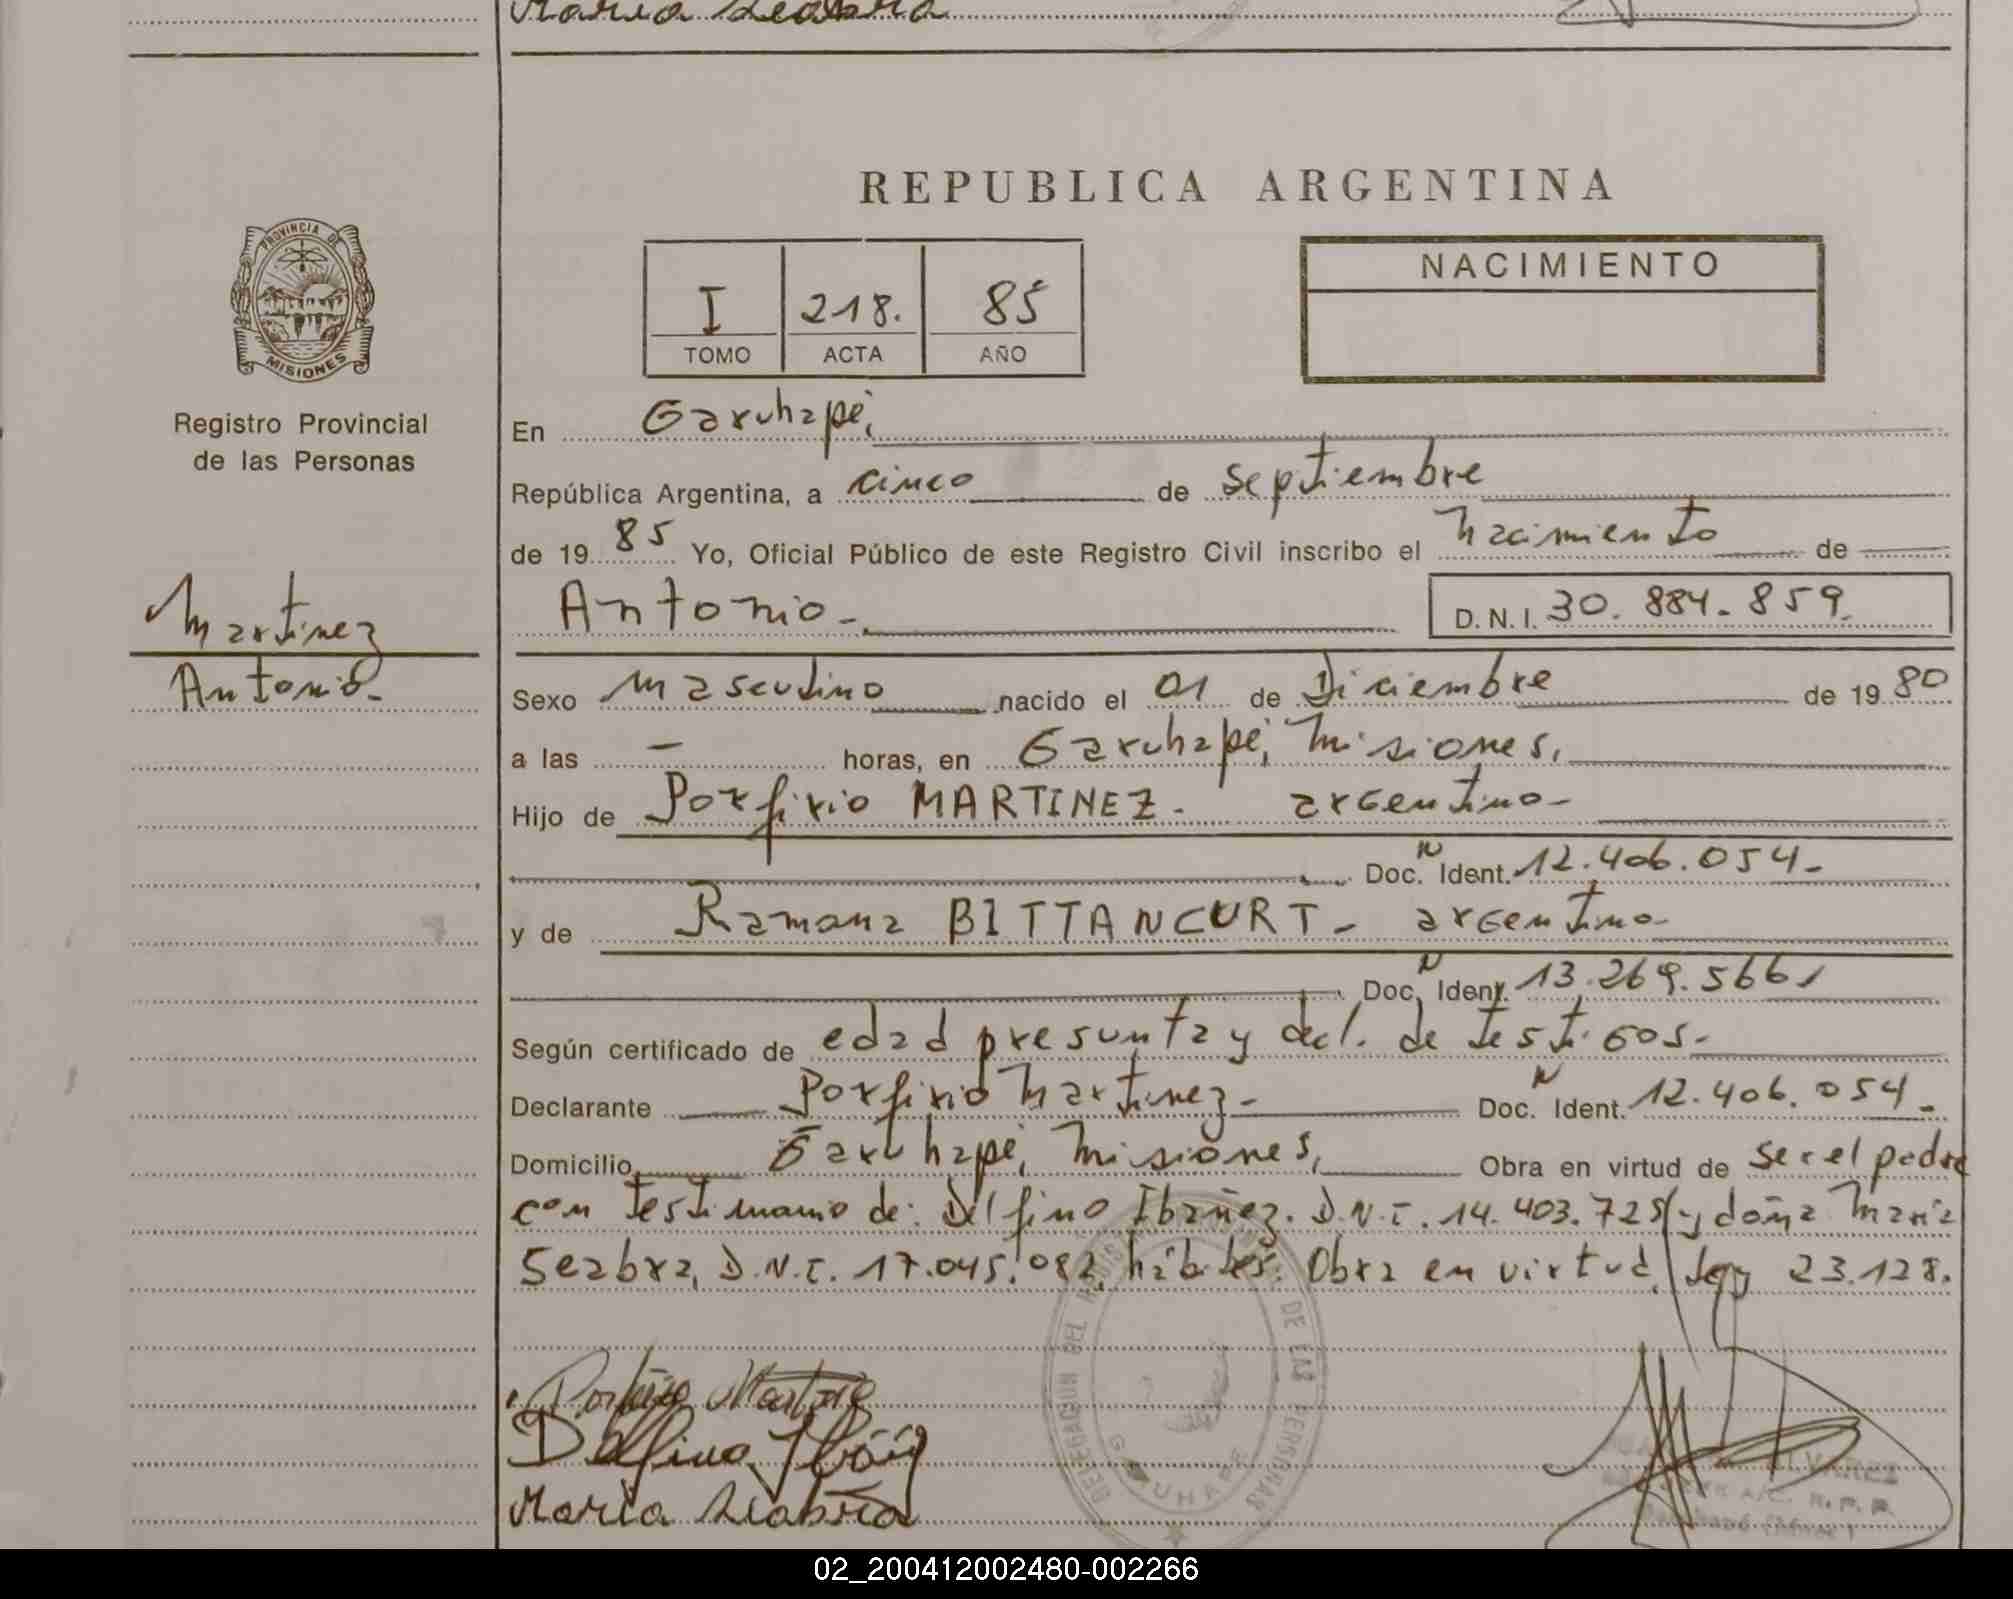 Maria Seabra
REPUBLICA ARGENTINA
PROVINCIA DE
MISIONES
I 218. 85
TOMO ACTA AÑO
NACIMIENTO
Registro Provincial
de las Personas
Martinez
Antonio-
En Garuhapé,
República Argentina, a cinco de septiembre
de 19 85 Yo, Oficial Público de este Registro Civil inscribo el nacimiento de
Antonio- D. N. I. 30.884.859.
Sexo masculino nacido el 01 de Diciembre de 19 80
a las — horas, en Garuhapé, Misiones,
Hijo de Porfirio MARTINEZ- argentino-
Doc. N Ident. 12.406.054-
y de Ramona BITTANCURT- argentino-
Doc. N Ident. 13.269.566,
Según certificado de edad presunta y decl. de testigos-
Declarante Porfirio Martinez- Doc. N Ident. 12.406.054-
Domicilio Garuhapé, Misiones, Obra en virtud de ser el padre
con testimonio de: Delfino Ibañez. D.N.I. 14.403.725 y doña Maria
Seabra, D.N.I. 17.045.082, hábiles. Obra en virtud Ley 23.128.
DELEGACION DEL DE LAS PERSONAS
GARUHAPE
Porfirio Martinez
Delfino Ibáñez
Maria Seabra
ALVAREZ
A/C. R.P.P.
02_200412002480-002266